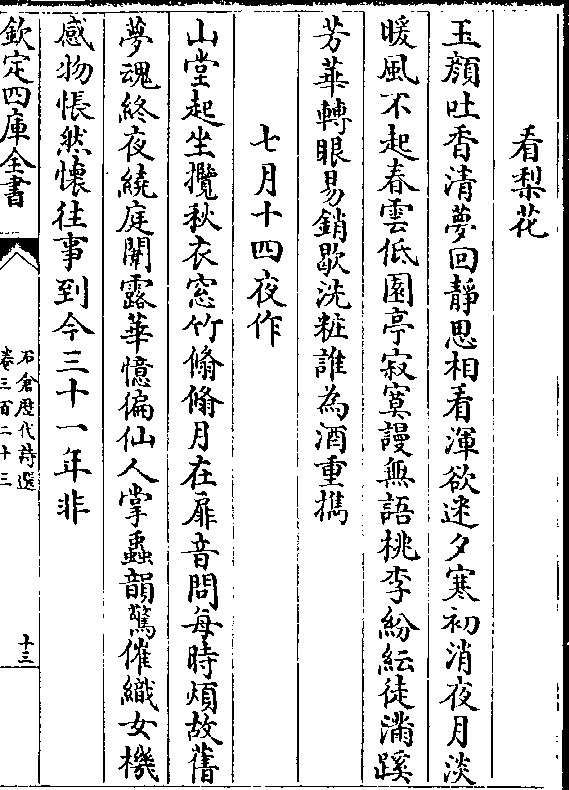 看梨花
玉顔吐香清夢回靜思相看渾欲迷夕寒初消夜月淡
暖風不起春雲低園亭寂寞謾無語桃李紛紜徒滿蹊
芳華轉眼易銷歇洗粧誰為酒重攜
七月十四夜作
山堂起坐攬秋衣窓竹翛翛月在扉音問每時煩故舊
夢魂終夜繞庭闈露華憶偏仙人掌蟲韻驚催織女機
感物悵然懷往事到今三十一年非
欽定四庫全書
石倉歴代詩選
卷三百二十三
十三